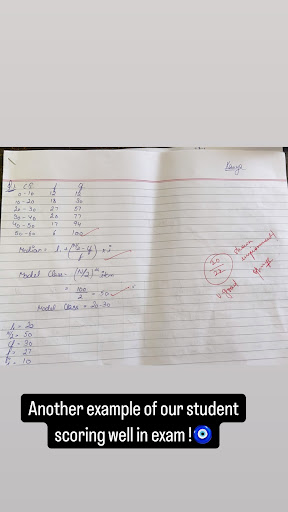 C.I f cf
0-10 12 12
10-20 18 30
20-30 27 57
30-40 20 77
40-50 17 94
50-60 6 100
Median = l + (N/2 - cf / f) × i
Model Class = (N/2)th item
= 100/2 = 50
Model Class = 20-30
l1 = 20
N/2 = 50
cf = 30
f = 27
i = 10
20/22
v.good
improvement
Another example of our student
scoring well in exam ! 🧿